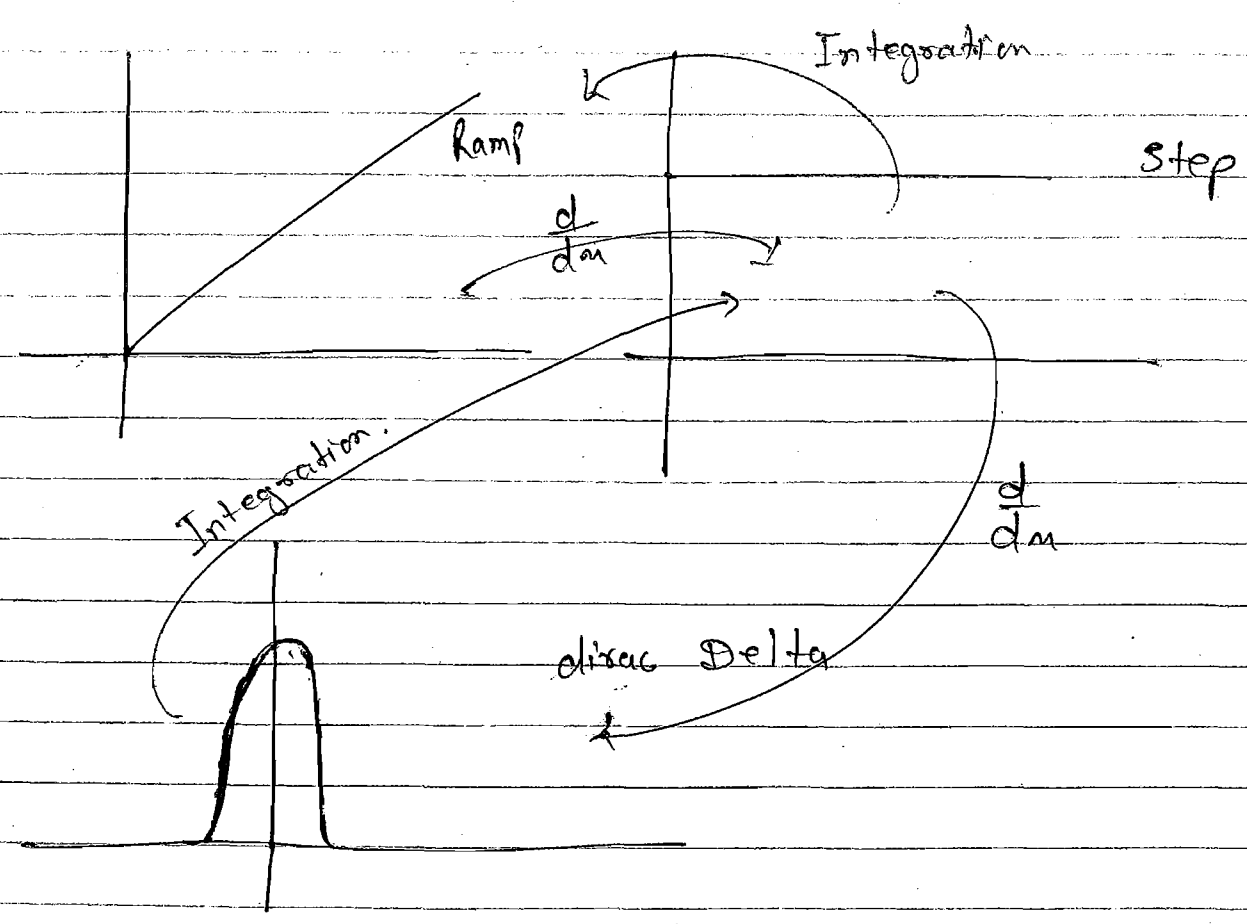 Integration
Ramp
Step
d/dx
Integration.
d/dx
dirac Delta